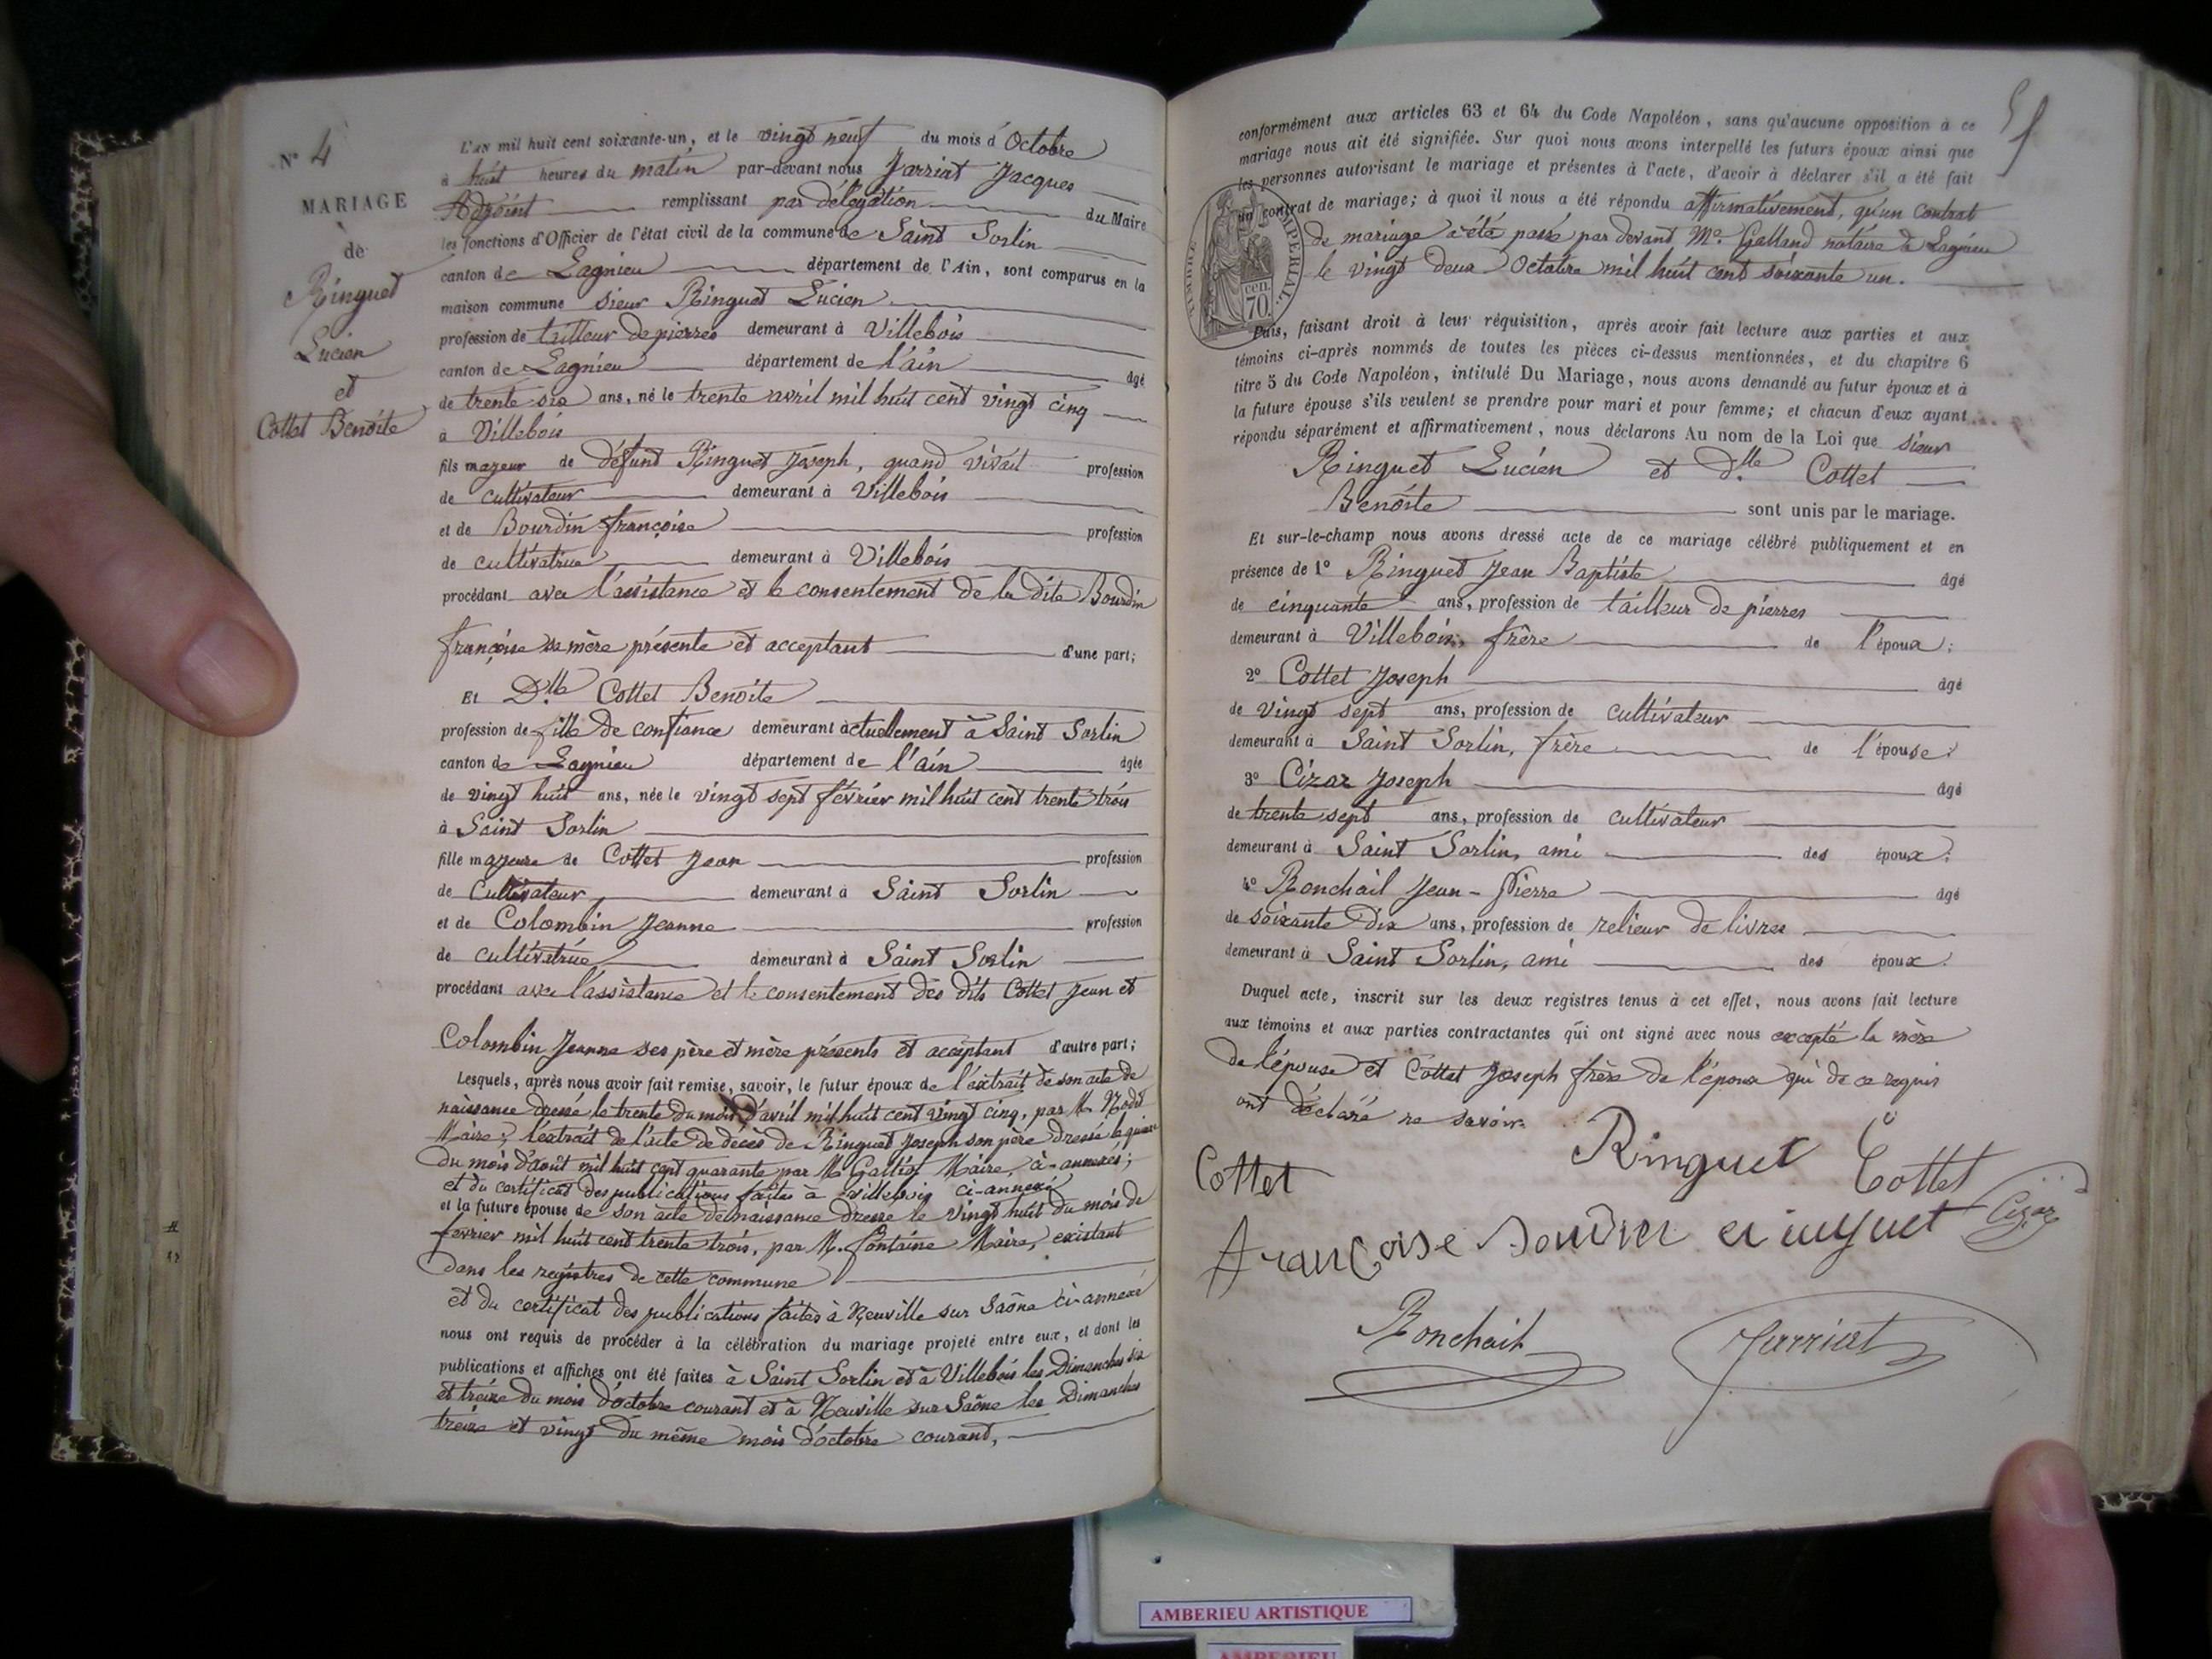 N° 4
MARIAGE
de
Ringuet
Lucien
et
Cottet Benoite
L'AN mil huit cent soixante-un, et le vingt neuf du mois d'Octobre
à huit heures du matin par-devant nous Jarriat Jacques
Adjoint remplissant par délégation du Maire
les fonctions d'Officier de l'état civil de la commune de Saint Sorlin
canton de Lagnieu département de l'Ain, sont comparus en la
maison commune sieur Ringuet Lucien
profession de tailleur de pierres demeurant à Villebois
canton de Lagnieu département de l'ain âgé
de trente six ans, né le trente avril mil huit cent vingt cinq
à Villebois
fils majeur de défunt Ringuet Joseph, quand vivait profession
de cultivateur demeurant à Villebois
et de Bourdin françoise profession
de cultivatrice demeurant à Villebois
procédant avec l'assistance et le consentement de la dite Bourdin
françoise sa mère présente et acceptant d'une part;
Et Dlle Cottet Benoite
profession de fille de confiance demeurant actuellement à Saint Sorlin
canton de Lagnieu département de l'ain âgée
de vingt huit ans, née le vingt sept février mil huit cent trente trois
à Saint Sorlin
fille majeure de Cottet Jean profession
de Cultivateur demeurant à Saint Sorlin
et de Colombin Jeanne profession
de cultivatrice demeurant à Saint Sorlin
procédant avec l'assistance et le consentement des dits Cottet Jean et
Colombin Jeanne ses père et mère présents et acceptant d'autre part;
Lesquels, après nous avoir fait remise, savoir, le futur époux de l'extrait de son acte de
naissance dressé le trente du mois d'avril mil huit cent vingt cinq, par M.
Maire; l'extrait de l'acte de décès de Ringuet Joseph son père dressé le quinze
du mois d'août mil huit cent quarante par M. Maire, ci-annexés;
et du certificat des publications faites à Villebois ci-annexé
et la future épouse de son acte de naissance dressé le vingt huit du mois de
février mil huit cent trente trois, par M. fontaine Maire, existant
dans les registres de cette commune
et du certificat des publications faites à Neuville sur Saône ci-annexé
nous ont requis de procéder à la célébration du mariage projeté entre eux, et dont les
publications et affiches ont été faites à Saint Sorlin et à Villebois les Dimanches six
et treize du mois d'octobre courant et à Neuville sur Saône les Dimanches
treize et vingt du même mois d'octobre courant,
51
conformément aux articles 63 et 64 du Code Napoléon, sans qu'aucune opposition à ce
mariage nous ait été signifiée. Sur quoi nous avons interpellé les futurs époux ainsi que
les personnes autorisant le mariage et présentes à l'acte, d'avoir à déclarer s'il a été fait
un contrat de mariage; à quoi il nous a été répondu affirmativement, qu'un contrat
de mariage a été passé par devant Me. Galland notaire à Lagnieu
le vingt deux Octobre mil huit cent soixante un.
TIMBRE IMPERIAL.
cen.
70.
Puis, faisant droit à leur réquisition, après avoir fait lecture aux parties et aux
témoins ci-après nommés de toutes les pièces ci-dessus mentionnées, et du chapitre 6
titre 5 du Code Napoléon, intitulé Du Mariage, nous avons demandé au futur époux et à
la future épouse s'ils veulent se prendre pour mari et pour femme; et chacun d'eux ayant
répondu séparément et affirmativement, nous déclarons Au nom de la Loi que sieur
Ringuet Lucien et Dlle Cottet
Benoite sont unis par le mariage.
Et sur-le-champ nous avons dressé acte de ce mariage célébré publiquement et en
présence de 1° Ringuet Jean Baptiste âgé
de cinquante ans, profession de tailleur de pierres
demeurant à Villebois, frère de l'époux;
2° Cottet Joseph âgé
de vingt sept ans, profession de cultivateur
demeurant à Saint Sorlin, frère de l'épouse;
3° Cizar Joseph âgé
de trente sept ans, profession de cultivateur
demeurant à Saint Sorlin, ami des époux;
4° Ronchail Jean-Pierre âgé
de soixante dix ans, profession de relieur de livres
demeurant à Saint Sorlin, ami des époux.
Duquel acte, inscrit sur les deux registres tenus à cet effet, nous avons fait lecture
aux témoins et aux parties contractantes qui ont signé avec nous excepté la mère
de l'épouse et Cottet Joseph frère de l'épouse qui de ce requis
ont déclaré ne savoir.
Ringuet Cottet
Cottet
Cizar
françoise Bourdin
Ronchail Jarriat
AMBERIEU ARTISTIQUE
AMBERIEU